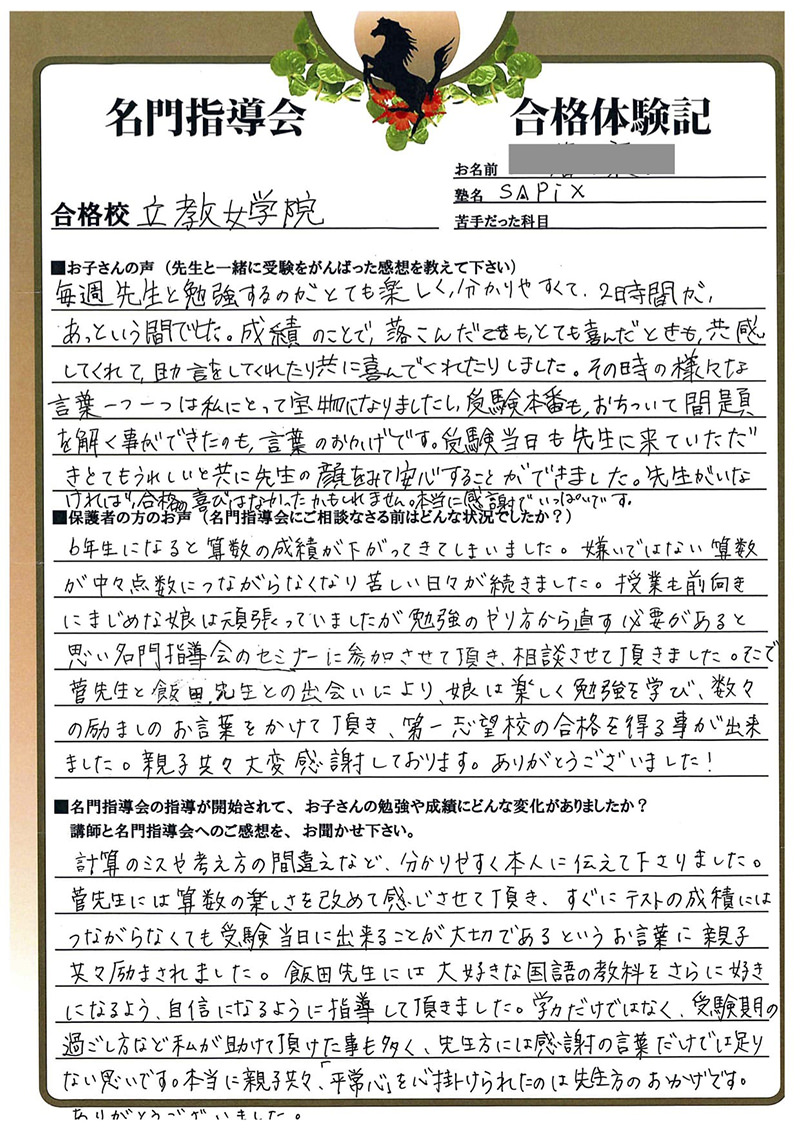 名門指導会
合格体験記
お名前
塾名 SAPiX
合格校 立教女学院
苦手だった科目
■お子さんの声（先生と一緒に受験をがんばった感想を教えて下さい）
毎週先生と勉強するのがとても楽しく、分かりやすくて、2時間が、
あっという間でした。成績のことで、落こんだときも、とても喜んだときも、共感
してくれて、助言をしてくれたり共に喜んでくれたりしました。その時の様々な
言葉一つ一つは私にとって宝物になりましたし、受験本番も、おちついて問題
を解く事ができたのも、言葉のおかげです。受験当日も先生に来ていただ
きとてもうれしいと共に先生の顔をみて安心することができました。先生がいな
ければ、合格の喜びはなかったかもしれません。本当に感謝でいっぱいです。
■保護者の方のお声（名門指導会にご相談なさる前はどんな状況でしたか？）
6年生になると算数の成績が下がってきてしまいました。嫌いではない算数
が中々点数につながらなくなり苦しい日々が続きました。授業も前向き
にまじめな娘は頑張っていましたが勉強のやり方から直す必要があると
思い名門指導会のセミナーに参加させて頂き、相談させて頂きました。そこで
菅先生と飯田先生との出会いにより、娘は楽しく勉強を学び、数々
の励ましのお言葉をかけて頂き、第一志望校の合格を得る事が出来
ました。親子共々大変感謝しております。ありがとうございました！
■名門指導会の指導が開始されて、お子さんの勉強や成績にどんな変化がありましたか？
講師と名門指導会へのご感想を、お聞かせ下さい。
計算のミスや考え方の間違えなど、分かりやすく本人に伝えて下さりました。
菅先生には算数の楽しさを改めて感じさせて頂き、すぐにテストの成績には
つながらなくても受験当日に出来ることが大切であるというお言葉に親子
共々励まされました。飯田先生には大好きな国語の教科をさらに好き
になるよう、自信になるように指導して頂きました。学力だけではなく、受験期の
過ごし方など私が助けて頂けた事も多く、先生方には感謝の言葉だけでは足り
ない思いです。本当に親子共々、「平常心」を心掛けられたのは先生方のおかげです。
ありがとうございました。